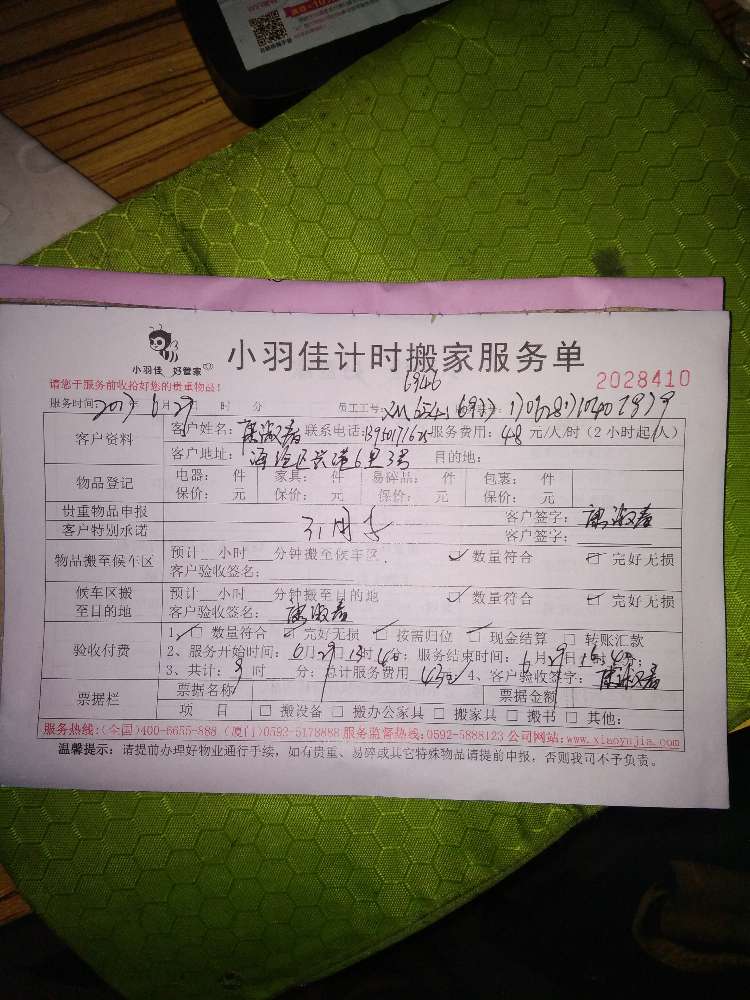 小羽佳 好管家
小羽佳计时搬家服务单
6946
2028410
请您于服务前收拾好您的贵重物品!
服务时间: 2017年6月29日 时 分 员工工号: XM6541 6977
客户资料
客户姓名: 陈淑春 联系电话: 服务费用: 48 元/人/时(2小时起/人)
客户地址: 海沧区兴港6里3号 目的地:
物品登记
电器: 件 家具: 件 易碎品: 件 包裹: 件
保价: 元 保价: 元 保价: 元 保价: 元
贵重物品申报 客户签字: 陈淑春
客户特别承诺 客户签字:
物品搬至候车区
预计__小时___分钟搬至候车区. ☑ 数量符合 □ 完好无损
客户验收签名:
候车区搬至目的地
预计__小时___分钟搬至目的地 ☑ 数量符合 ☑ 完好无损
客户验收签名: 陈淑春
验收付费
1、☑ 数量符合 ☑ 完好无损 □ 按需归位 □ 现金结算 □ 转账汇款
2、服务开始时间: 6月29日13时40分; 服务结束时间: 6月29日16时40分;
3、共计: 3时 分; 总计服务费用 4、客户验收签字: 陈淑春
票据栏
票据名称 票据金额
项 目 □ 搬设备 □ 搬办公家具 □ 搬家具 □ 搬书 □ 其他:
服务热线:(全国)400-6655-888 (厦门)0592-5178888 服务监督热线:0592-5888123 公司网站:www.xiaoyujia.com
温馨提示: 请提前办理好物业通行手续, 如有贵重、易碎或其它特殊物品请提前申报, 否则我司不予负责。